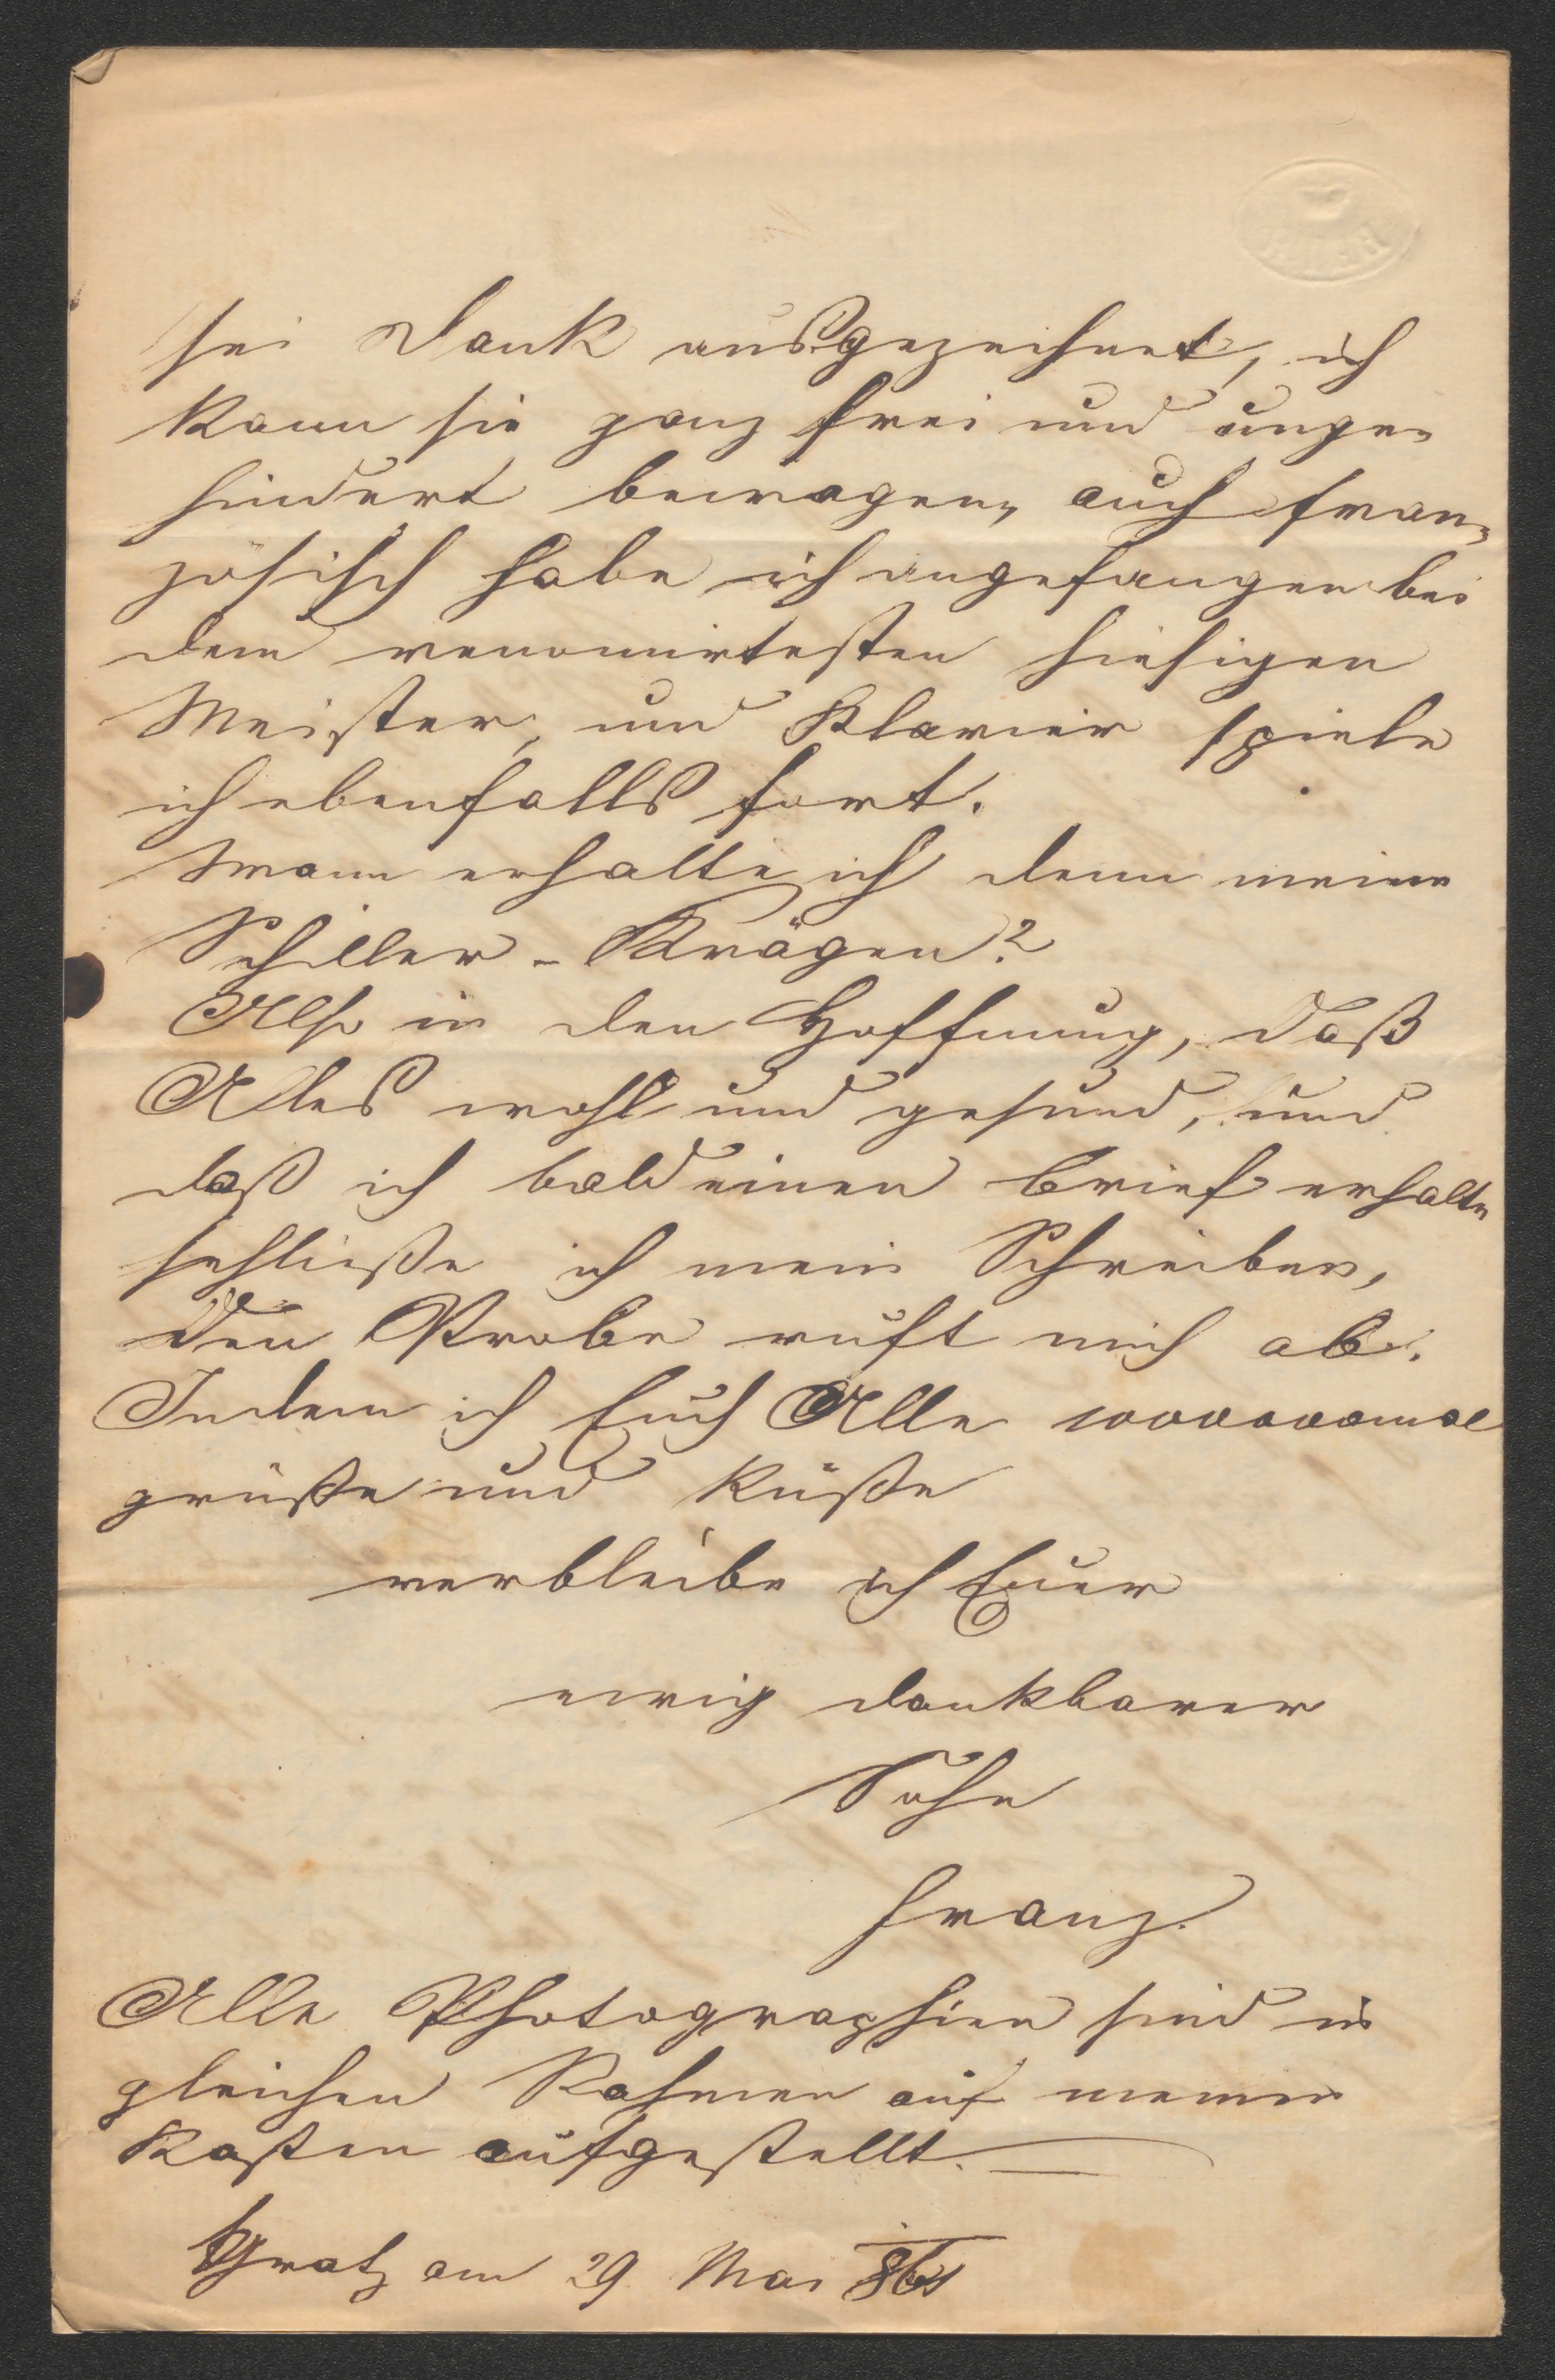 sei Dank ausgezeichnet, ich
kann sie ganz frei und unge-
hindert bewegen, auch fran-
zösisch habe ich angefangen bei
dem renomirtesten hiesigen
Meister, und Klavier spiele
ich ebenfalls fort.
Wann erhalte ich denn meine
Schiller-Krägen?
Also in der Hoffnung, daß
Alles wohl und gesund, und
daß ich bald einen Brief erhalte
schließe ich mein Schreiben,
Die Probe ruft mich ab.
Indem ich Euch Alle
grüße und küße
verbleibe ich Euer
ewig dankbarer
Sohn
Franz.
Alle Photographien sind in
gleichen Rahmen auf meinen
Kasten aufgestellt.
Gratz am 29 Mai